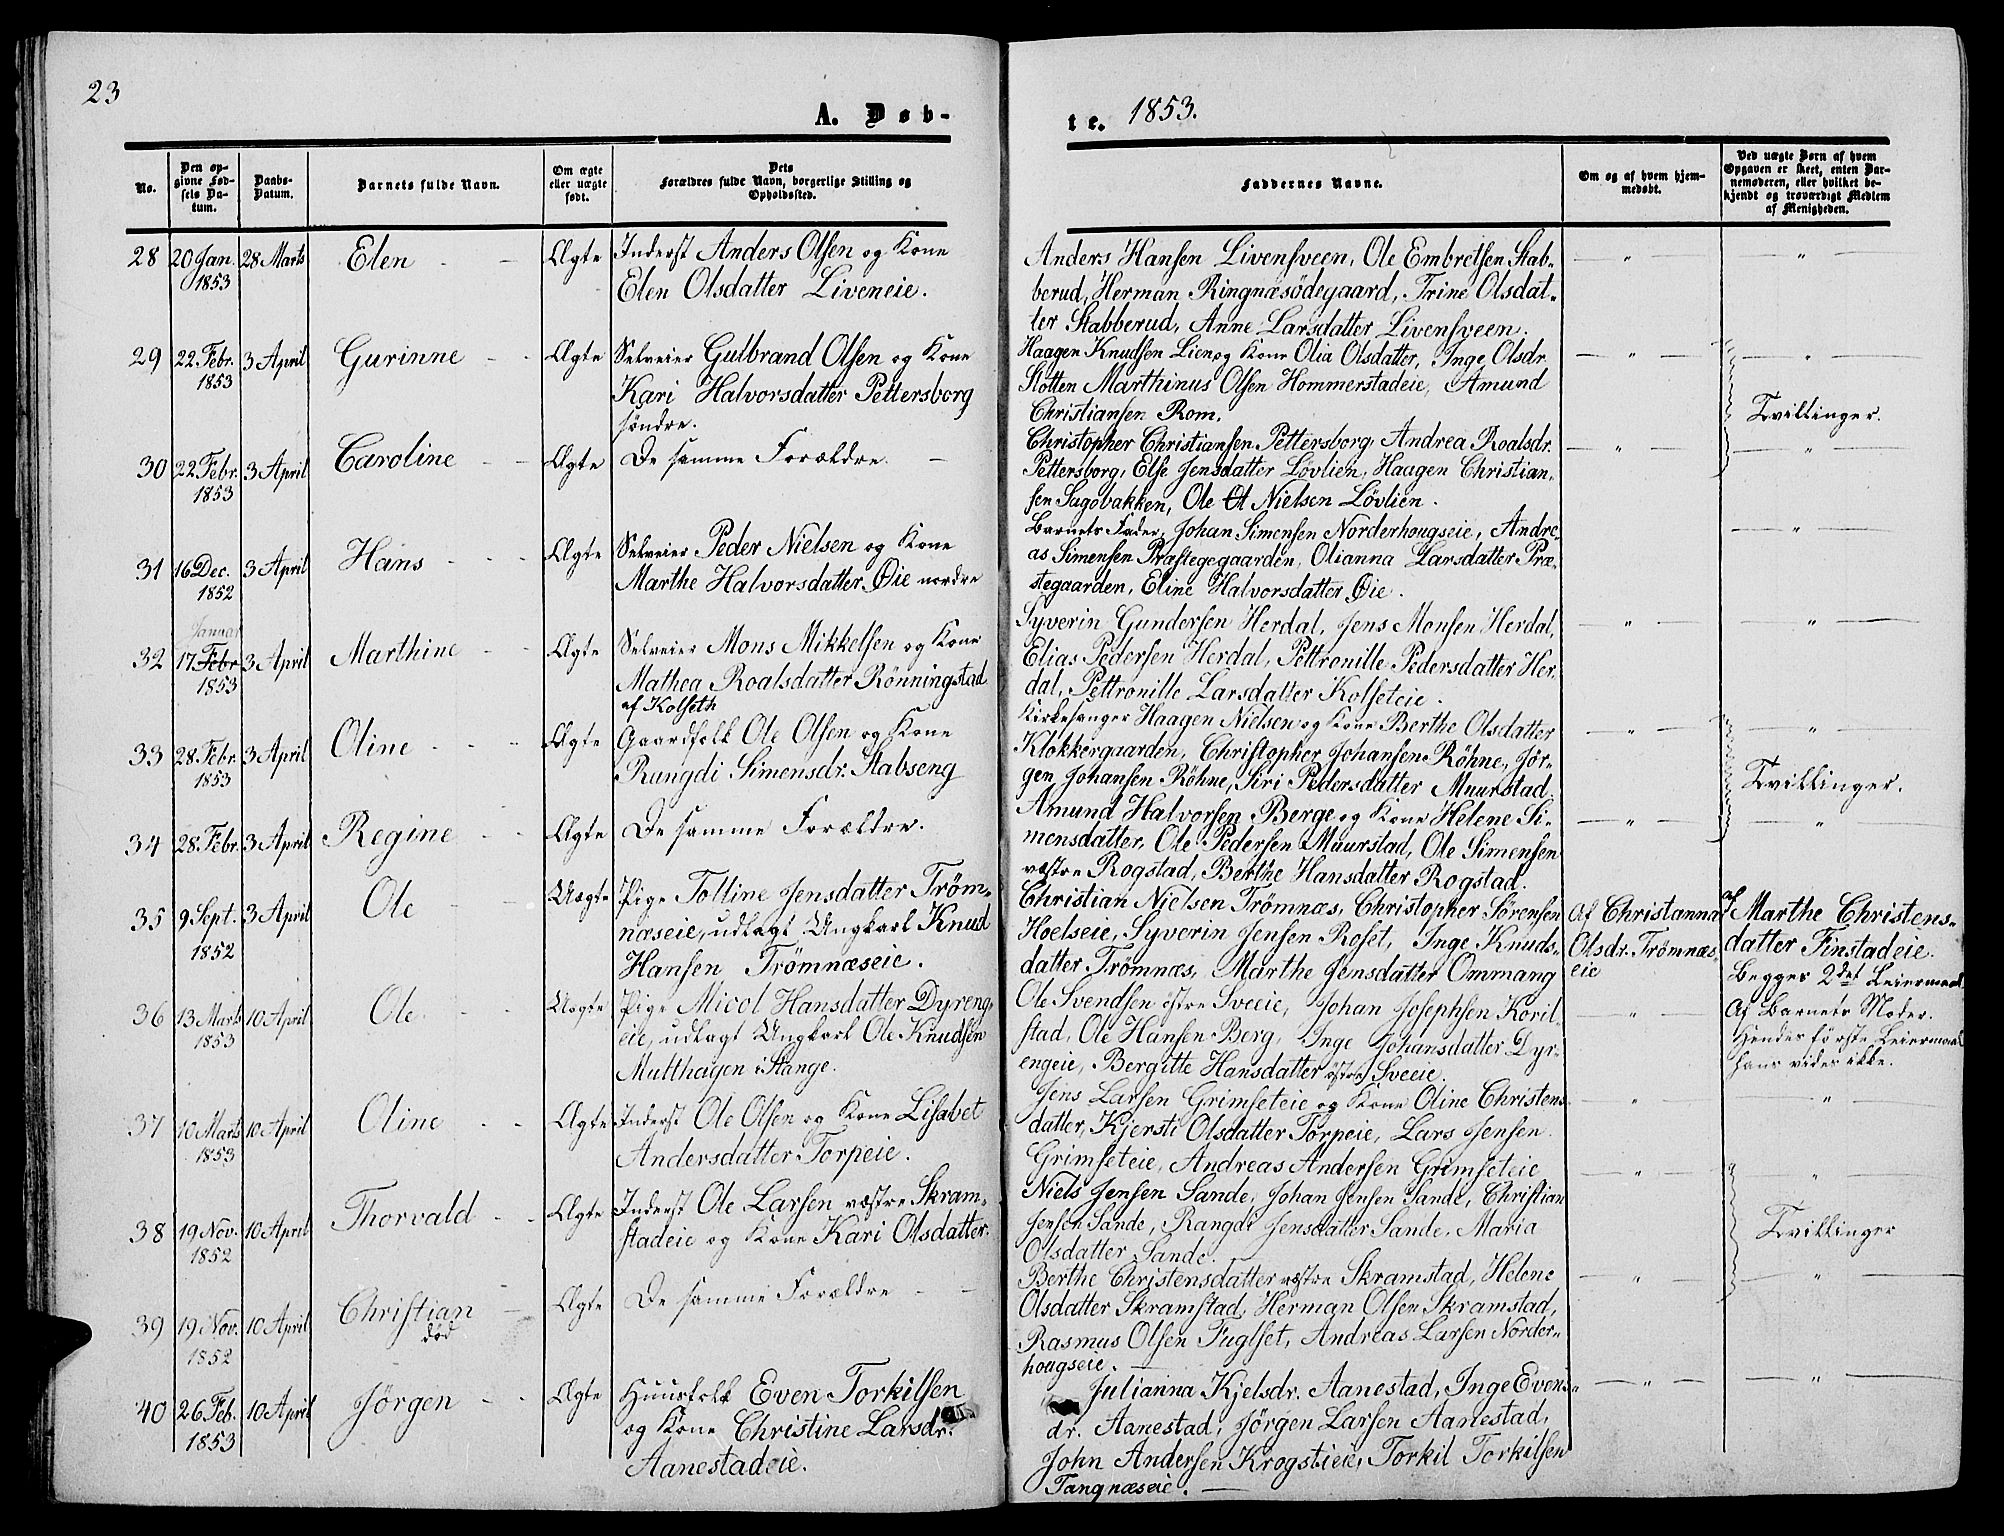 23
A. Døb-
te. 1853.
No.
Den op-
givne Fød-
sels Da-
tum.
Daabs-
Datum.
Barnets fulde Navn.
Om ægte
eller uægte
født.
Dets
Forældres fulde Navn, borgerlige Stilling og
Opholdssted.
Faddernes Navne.
Om og af hvem hjem-
medøbt.
Ved uægte Børn af hvem
Opgaven er skeet, enten Bar-
nemoderen, eller hvilket be-
kjendt og troværdigt Medlem
af Menigheden.
28 20 Jan. 1853 28 Marts Elen - - Ægte
Inderst Anders Olsen og Kone
Elen Olsdatter Liveneie.
Anders Hansen Livensveen, Ole Embretsen Stab-
berud, Herman Ringnæsødegaard, Trine Olsdat-
ter Stabberud, Anne Larsdatter Livensveen.
29 22 Febr. 1853 3 April Gurinne - - Ægte
Selveier Gulbrand Olsen og Kone
Kari Halvorsdatter Pettersborg
søndre.
Haagen Knudsen Lien og Kone Olia Olsdatter, Inge Olsdr.
Stotten Marthinus Olsen Hommerstadeie, Amund
Christiansen Rom.
Tvillinger.
30 22 Febr. 1853 3 April Caroline - - Ægte
De samme Forældre. -
Christopher Christiansen Pettersborg, Andrea Roalsdr.
Pettersborg, Else Jensdatter Lövlien, Haagen Christian-
sen Sagbakken, Ole Nielsen Lövlien.
31 16 Dec. 1852 3 April Hans - - Ægte
Selveier Peder Nielsen og Kone
Marthe Halvorsdatter Øie nordre
Barnets Fader, Johan Simensen Norderhougseie, Andre-
as Simensen Præstegegaarden, Olianna Larsdatter Præ-
stegaarden, Eline Halvorsdatter Øie.
32 Januar 17 Febr 1853 3 April Marthine - - Ægte
Selveier Mons Mikkelsen og Kone
Mathea Roalsdatter Rönningstad
af Kolseth
Syverin Gundersen Herdal, Jens Monsen Herdal,
Elias Pedersen Herdal, Pettronille Pedersdatter Her-
dal, Pettronille Larsdatter Kolseteie.
33 28 Febr. 1853 3 April Oline - - - Ægte
Gaardfolk Ole Olsen og Kone
Rungdi Simensdr. Stabseng
Kirkesanger Haagen Nielsen og Kone Berthe Olsdatter
Klokkergaarden, Christopher Johansen Röhne, Jör-
gen Johansen Röhne, Siri Pedersdatter Muurstad.
Tvillinger.
34 28 Febr. 3 April Regine - - Ægte
De samme Forældre.
Amund Halvorsen Berge og Kone Helene Si-
mensdatter, Ole Pedersen Muurstad, Ole Simensen
væstre Rogstad, Berthe Hansdatter Rogstad.
35 9 Sept. 1852 3 April Ole - - Uægte
Pige Tolline Jensdatter Tröm-
næseie, udlagt Ungkarl Knud
Hansen Trömnæseie.
Christian Nielsen Trömnæs, Christopher Sörensen
Hoelseie, Syverin Jensen Roset, Inge Knuds-
datter Trömnæs, Marthe Jensdatter Ommang
Af Christanna
Olsdr. Trömnæs-
eie
Af Marthe Christens-
datter Finstadeie.
Begges 2det Leiermaal.
36 13 Marts 1853 10 April Ole. - - Uægte
Pige Micol Hansdatter Dyreng-
eie, udlagt Ungkarl Ole Knudsen
Multhagen i Stange.
Ole Svendsen östre Sveeie, Johan Josephsen Koril-
stad, Ole Hansen Berg, Inge Johansdatter Dyr-
engeie, Bergitte Hansdatter östre Sveeie.
Af Barnets Moder.
Hendes første Leiermaal
hans vides ikke.
37 10 Marts 1853 10 April Oline - - Ægte
Inderst Ole Olsen og Kone Lisabet
Andersdatter Torpeie.
Jens Larsen Grimseteie og Kone Oline Christens-
datter, Kjersti Olsdatter Torpeie, Lars Jensen
Grimseteie, Andreas Andersen Grimseteie
38 19 Nov. 1852 10 April Thorvald - - Ægte
Inderst Ole Larsen væstre Skram-
stadeie og Kone Kari Olsdatter.
Niels Jensen Sande, Johan Jensen Sande, Christian
Jensen Sande, Rangdi Jensdatter Sande, Maria
Olsdatter Sande.
Tvillinger
39 19 Nov. 1852 10 April Christian - Ægte
død
De samme Forældre - -
Berthe Christensdatter væstre Skramstad, Helene
Olsdatter Skramstad, Herman Olsen Skramstad,
Rasmus Olsen Fuglset, Andreas Larsen Norder-
hougseie.
40 26 Feb. 1853 10 April Jörgen - - Ægte
Huusfolk Even Torkilsen
og Kone Christine Larsdr.
Aanestadeie.
Julianna Kjelsdr. Aanestad, Inge Evens-
dr. Aanestad, Jörgen Larsen Aanestad,
John Andersen Krogstieie, Torkil Torkilsen
Tangnæseie.